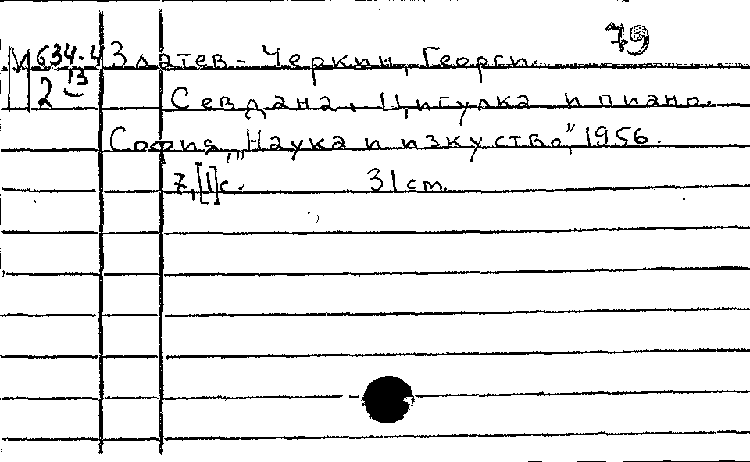 79
М 634.4 Златев-Черкин, Георги.
13
2 Севдана. Цигулка и пиано.
София, „Наука и изкуство", 1956.
7,[1]с. 31 cm.